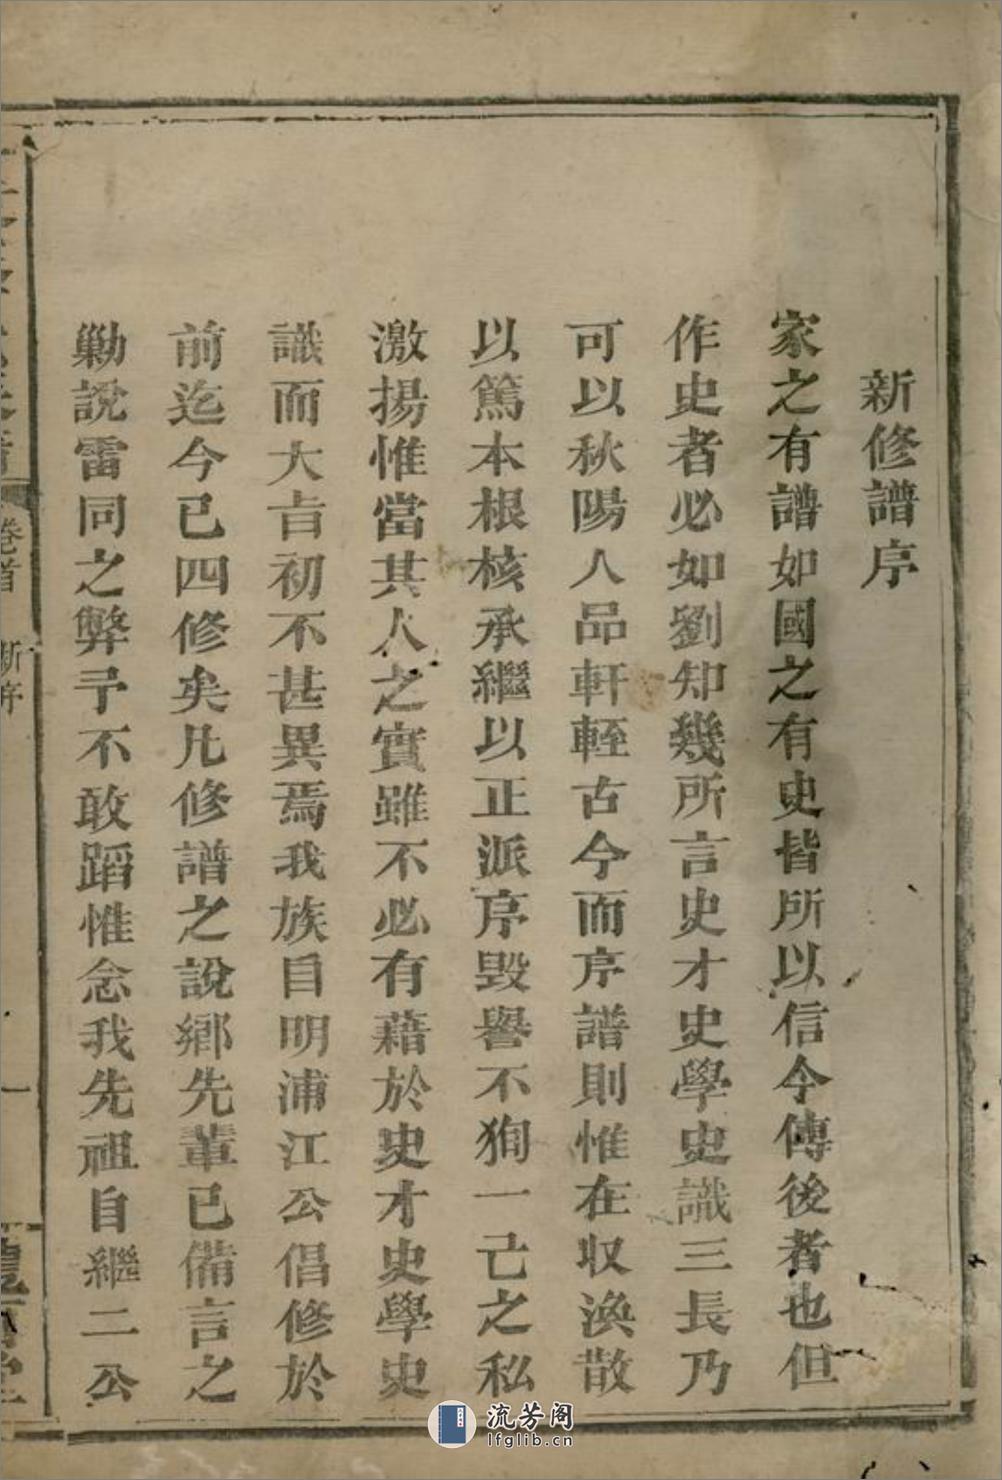 新修譜序
家之有譜如國之有史皆所以信今傳後者也但
作史者必如劉知幾所言史才史學史識三長乃
可以秋陽人品軒輊古今而序譜則惟在収渙散
以篤本根核承繼以正派序毀譽不狥一己之私
激揚惟當其人之實雖不必有藉於史才史學史
識而大㫖初不甚異焉我族自明浦江公倡修於
前迄今已四修矣凡修譜之說鄉先輩已備言之
勦說雷同之弊予不敢蹈惟念我先祖自繼二公
卷首
新序
一
流芳阁
lfglib.cn